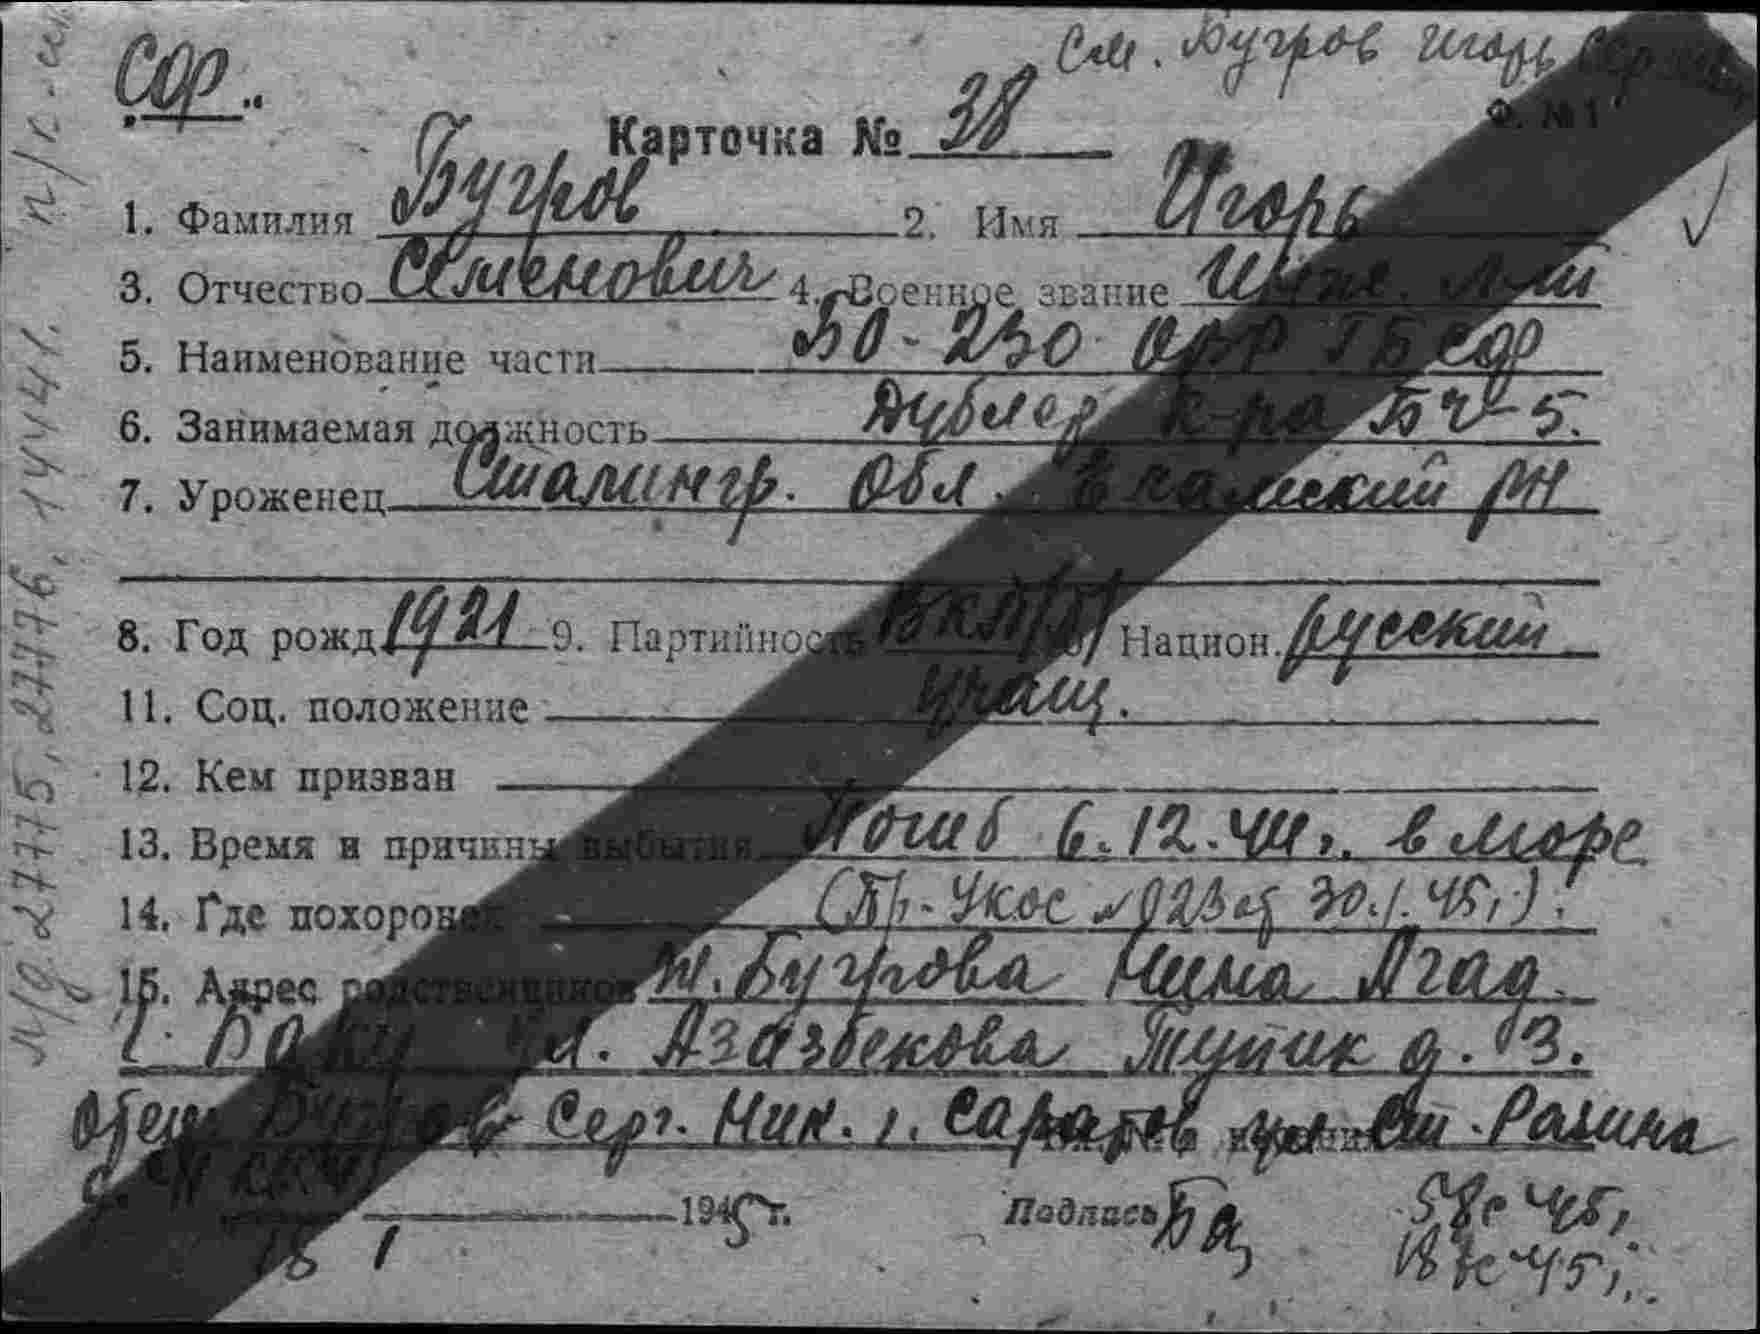 СФ.
См. Бугров Игорь
Ф. №1
Карточка № 38
1. Фамилия Бугров 2. Имя Игорь
3. Отчество Семенович 4. Военное звание Инж. л-т
5. Наименование части БО-230 ОВР ГБ СФ
6. Занимаемая должность Дублер к-ра БЧ-5.
7. Уроженец Сталингр. обл. рн
8. Год рожд 1921 9. Партийность ВКП(б) Национ. русский
11. Соц. положение учащ.
12. Кем призван
13. Время и причины выбытия Погиб 6.12.44г. в море
14. Где похоронен (Пр. УКОС №023 от 30.1.45г.).
15. Адрес родственников ж. Бугрова Нина Аркад.
г. Баку ул. Азазбекова Тупик д. 3.
Отец Бугров Серг. Ник. г. Саратов ул Ст. Разина
д.
18 1 1945 г. Подпись
58с 45г.
45г.
27775, 27776, 14441.